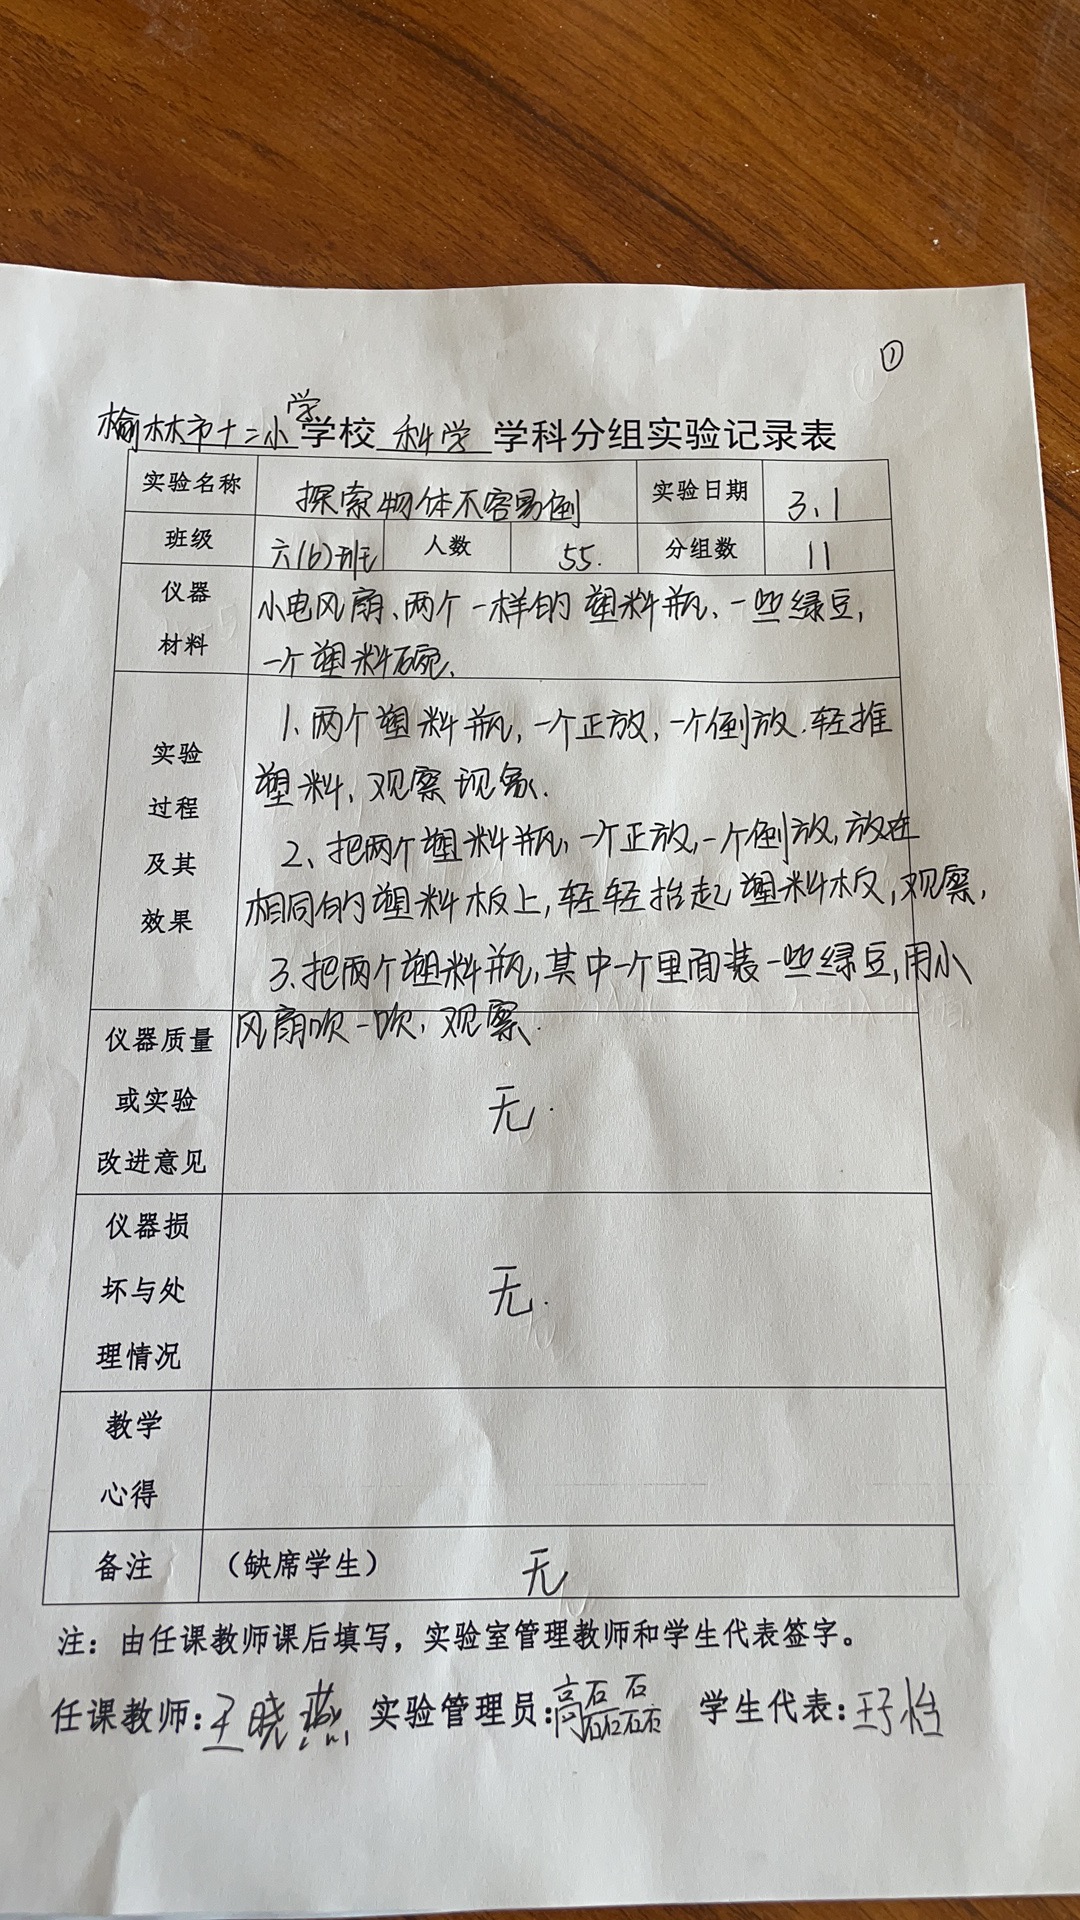 ①
榆林市十二小学学校 科学 学科分组实验记录表
实验名称 探索物体不容易倒 实验日期 3、1
班级 六(6)班 人数 55. 分组数 11
仪器材料 小电风扇、两个一样的塑料瓶、一些绿豆,
一个塑料碗、
实验过程及其效果 1、两个塑料瓶,一个正放,一个倒放.轻推
塑料、观察现象.
2、把两个塑料瓶,一个正放,一个倒放,放在
相同的塑料板上,轻轻抬起塑料板,观察,
3、把两个塑料瓶,其中一个里面装一些绿豆,用小
风扇吹一吹,观察.
仪器质量或实验改进意见 无.
仪器损坏与处理情况 无.
教学心得
备注 (缺席学生) 无
注:由任课教师课后填写,实验室管理教师和学生代表签字。
任课教师:王晓燕 实验管理员:高磊磊 学生代表:王子怡